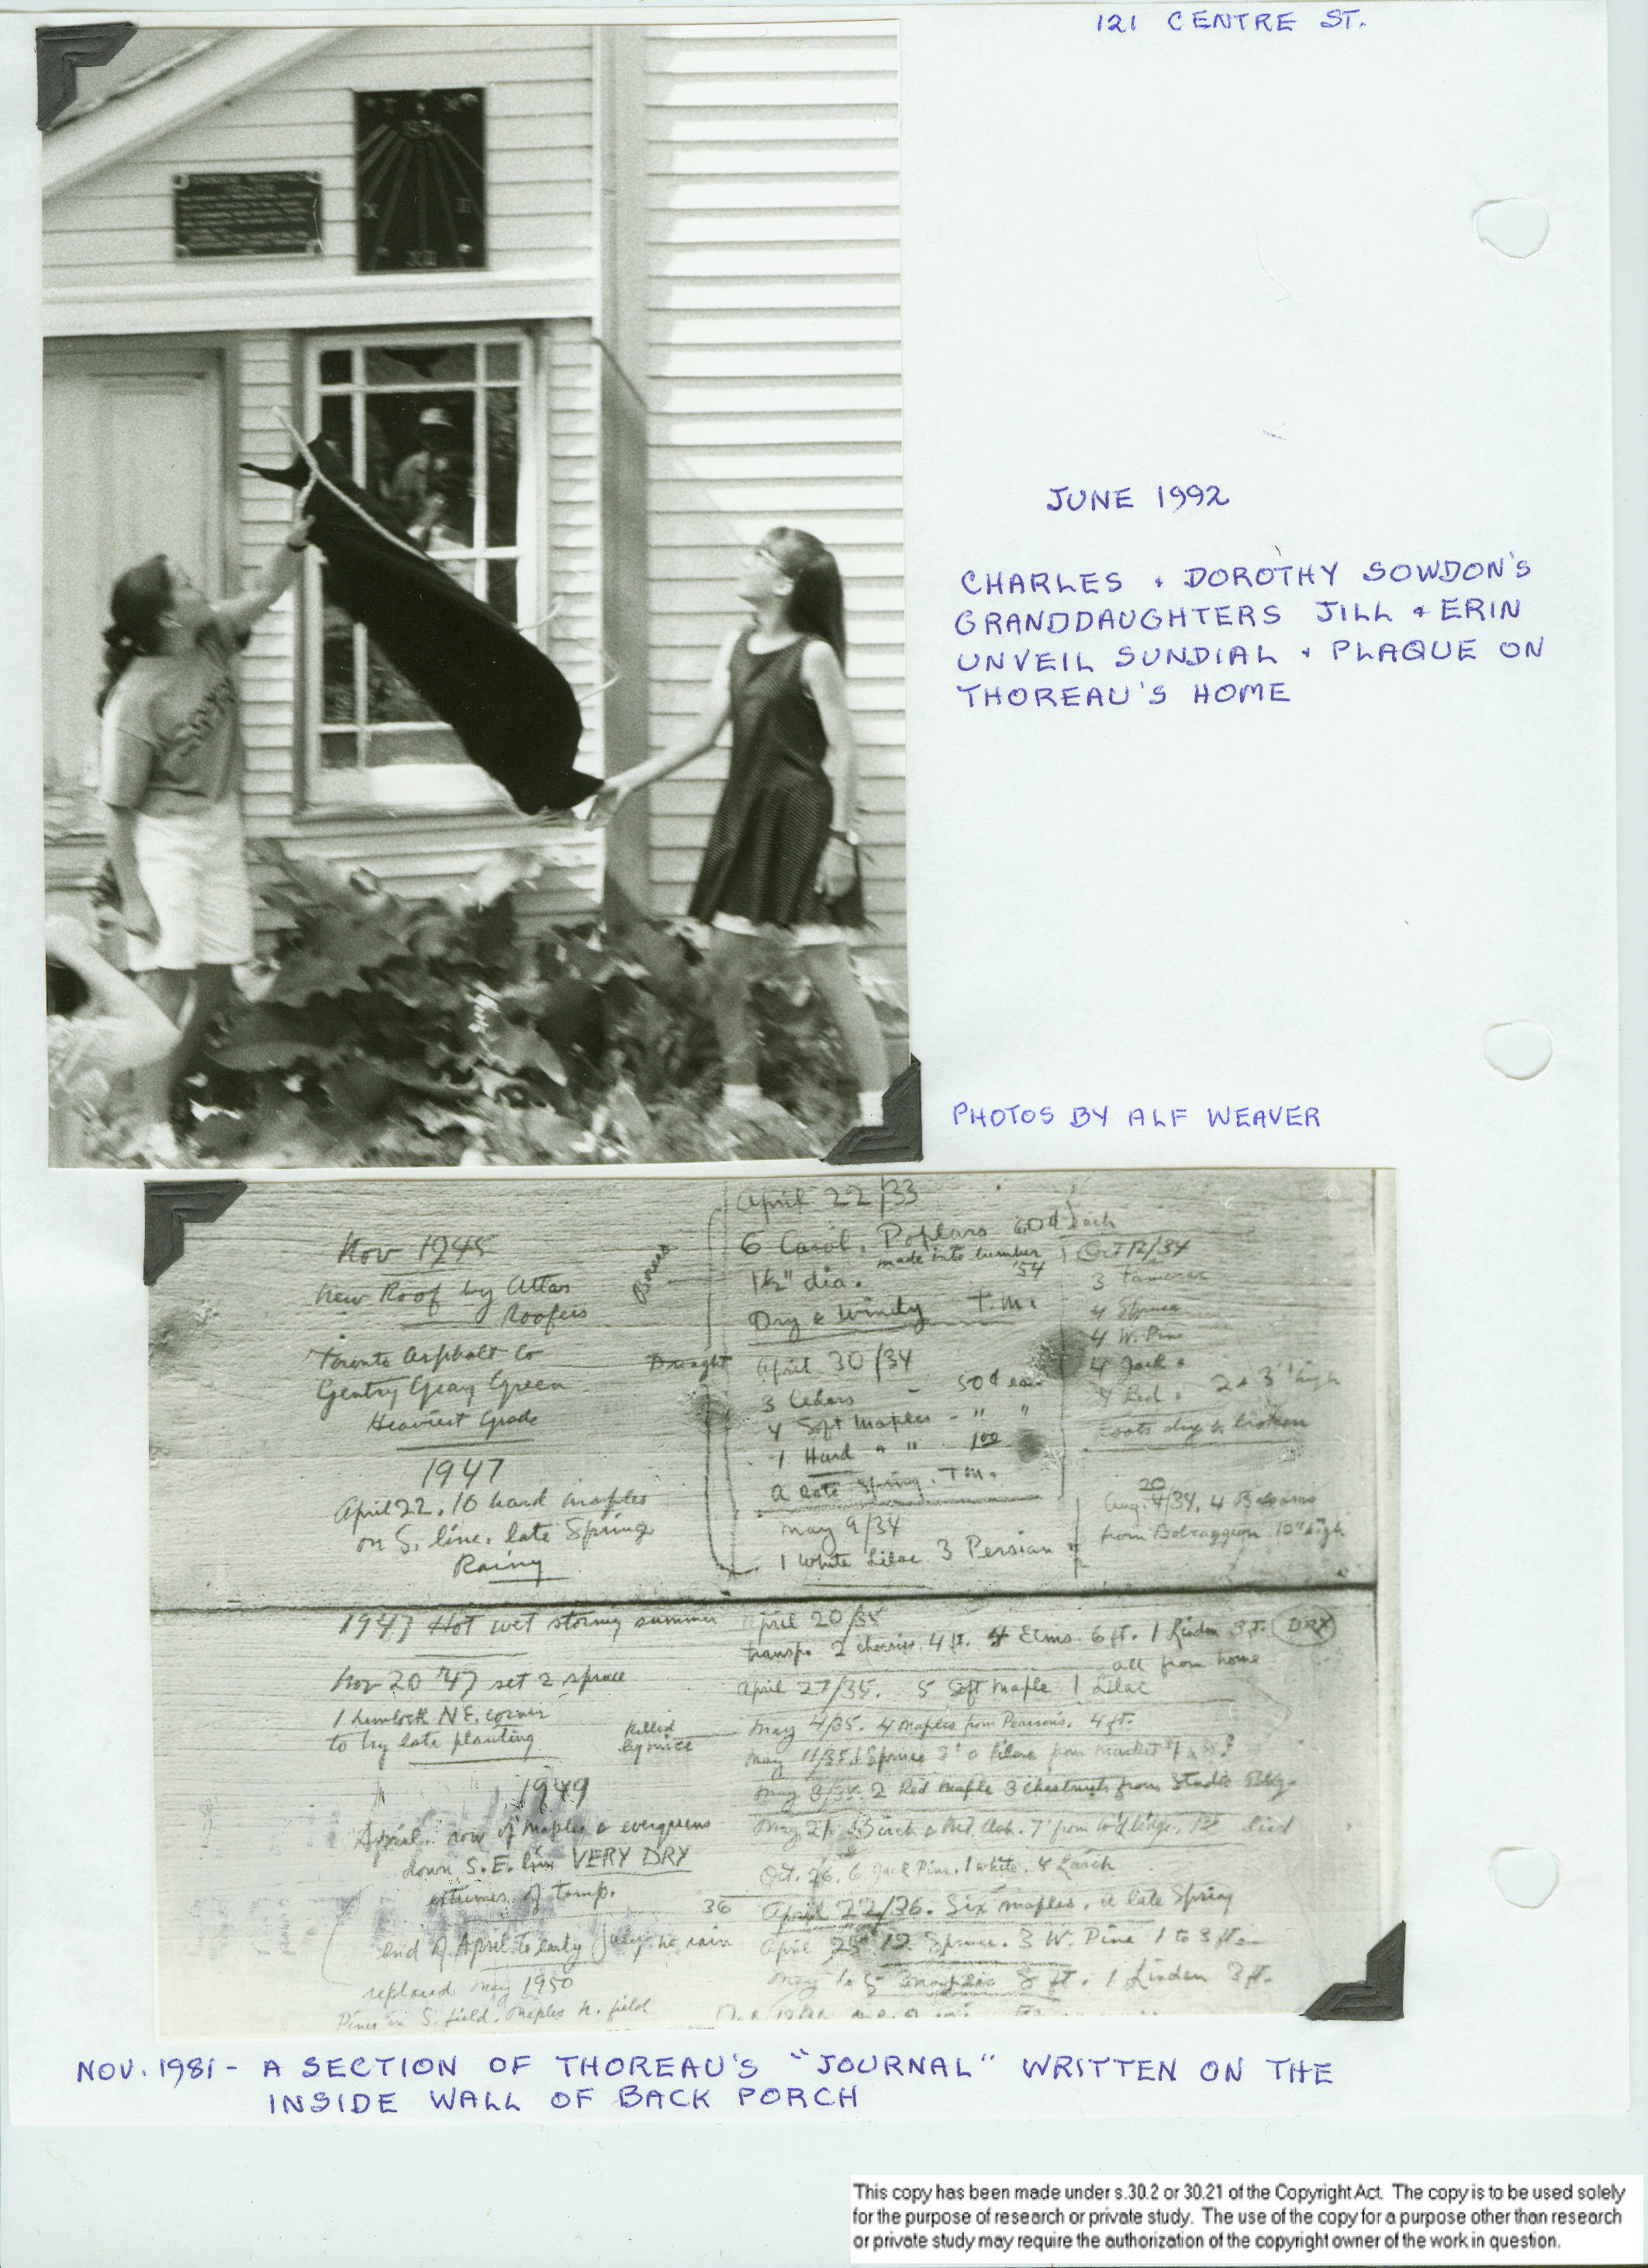 121 CENTRE ST.
T M
1934
X II
XII
JUNE 1992
CHARLES + DOROTHY SOWDON'S
GRANDDAUGHTERS JILL + ERIN
UNVEIL SUNDIAL + PLAQUE ON
THOREAU'S HOME
PHOTOS BY ALF WEAVER
Nov 1945
New Roof by Atlas
Roofers
Toronto Asphalt Co
Gentry Gray Green
Heaviest Grade
1947
April 22. 10 hard maples
on S. line. late Spring
Rainy
1947 Hot wet stormy summer
Nov 20 '47 set 2 spruce
1 hemlock N E. corner
to try late planting
1949
April. row of maples & evergreens
down S. E. line VERY DRY
extremes of temp.
end of April to early July no rain
replaced May 1950
Pines in S. field. Maples N. field
April 22/33
6 Carol. Poplars 60¢ Each
made into lumber
'54
1½" dia.
Dry & Windy T.M.
Drought
April 30/34
3 Cedars - 50¢ ea.
4 Soft Maples - " "
1 Hard " " 1.00
A late Spring. T.M.
May 9/34
1 White Lilac 3 Persian
Oct 12/34
3 Tamarac
4 Spruce
4 W. Pine
4 Jack "
4 Red " 2 & 3' high
roots dry & broken
20
Aug. /34. 4 Balsams
from 10" high
April 20/35
transp. 2 cherries. 4 ft. 4 Elms. 6 ft. 1 Linden 3 ft. DRY
all from home
April 27/35. 5 Soft Maple 1 Lilac
Killed
by mice
May 4/35. 4 Maples from Pearson's. 4 ft.
May 11/35. Spruce 2' from market
May 8/35. 2 Red Maple 3 Chestnuts from Studio Bldg.
May 21. Birch & Mt. Ash. 7' from died
Oct. 26. 6 Jack Pine. 1 white. 4 Larch
36
April 22/36. Six maples. a late Spring
April 25 12 Spruce. 3 W. Pine 1 to 3 ft.
May 10 5 maples 8 ft. 1 Linden 3 ft.
NOV. 1981 - A SECTION OF THOREAU'S "JOURNAL" WRITTEN ON THE
INSIDE WALL OF BACK PORCH
This copy has been made under s.30.2 or 30.21 of the Copyright Act. The copy is to be used solely
for the purpose of research or private study. The use of the copy for a purpose other than research
or private study may require the authorization of the copyright owner of the work in question.